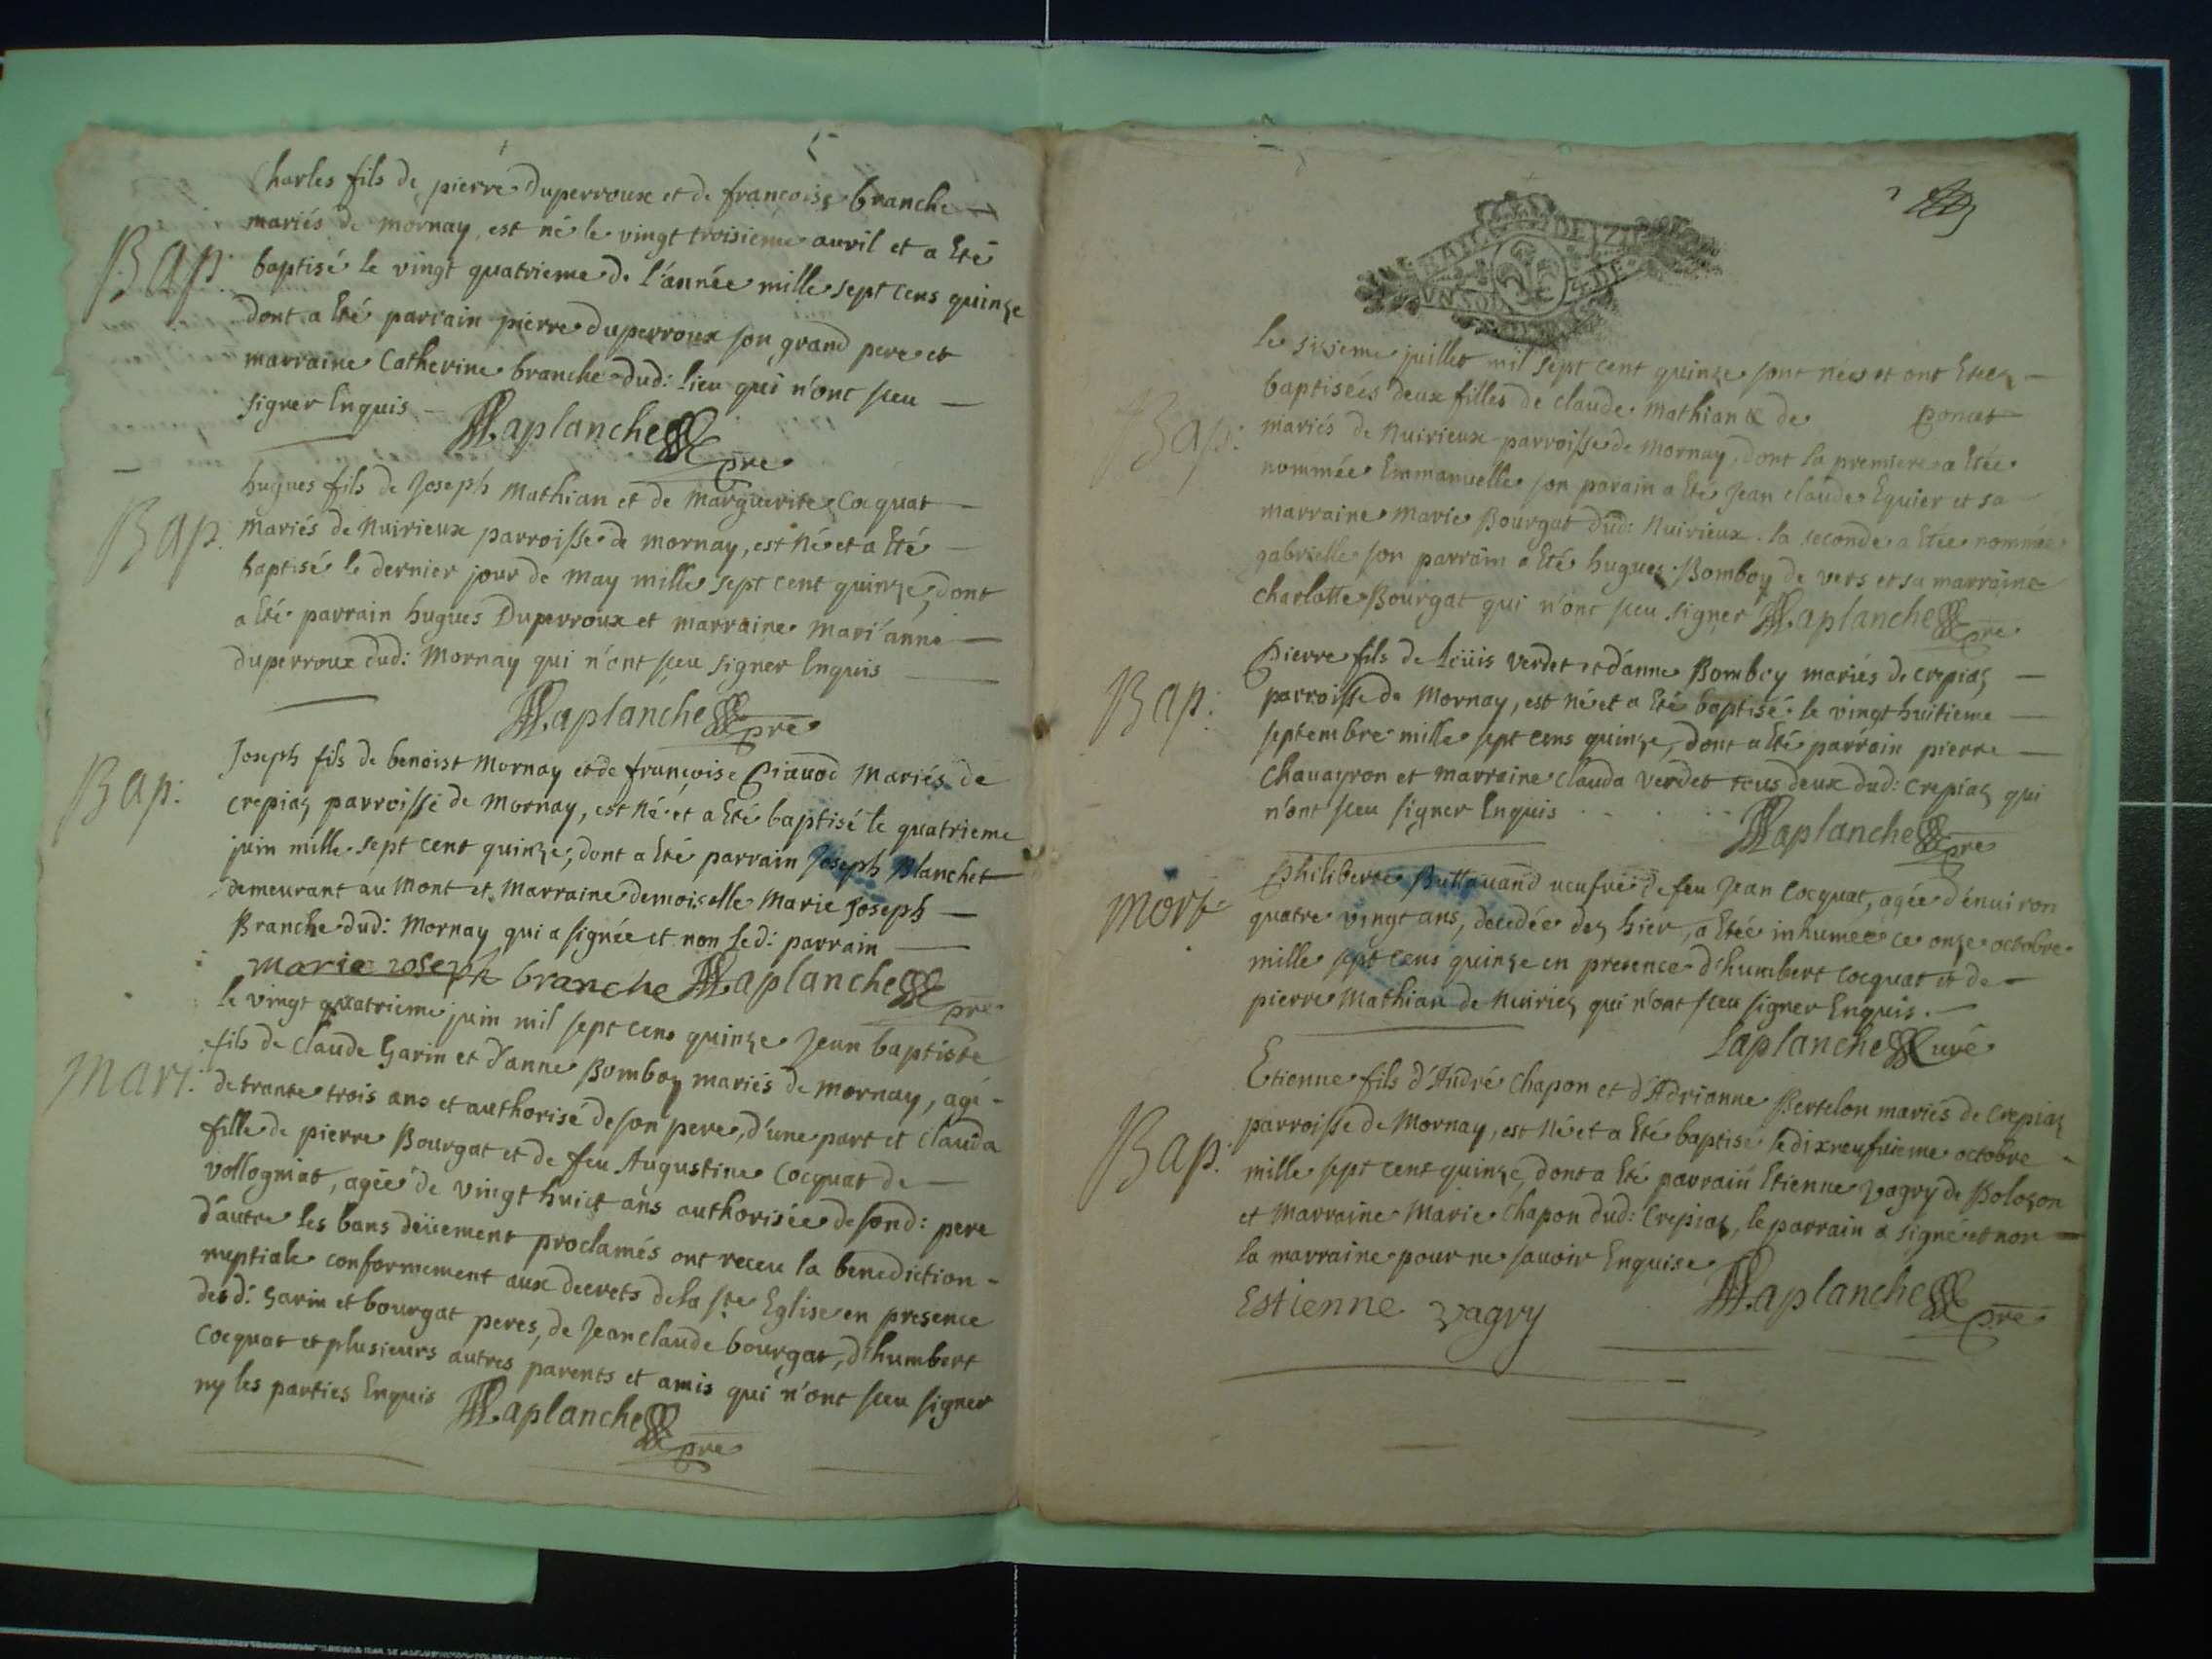 Charles fils de pierre duperroux et de francoise branche
mariés de mornay, est né le vingt troisieme auril et a Eté
Bap. baptisé le vingt quatrieme de l'année mille sept cens quinze
dont a Eté parrain pierre duperroux son grand pere et
marraine Catherine branche dud: lieu qui n'ont sceu
signer Enquis
Laplanche pre
hugues fils de Joseph Mathian et de Marguerite Cocquat
Bap. mariés de Nuirieux parroisse de mornay, est Né et a Eté
baptisé le dernier jour de may mille sept cent quinze, dont
a Eté parrain hugues Duperroux et marraine mari'anne
duperroux dud: Mornay qui n'ont sceu signer Enquis
Laplanche pre
Joseph fils de benoist Mornay et de françoise Mariés de
Bap: crepiaz parroisse de Mornay, est Né et a Eté baptisé le quatrieme
juin mille sept cent quinze, dont a Eté parrain Joseph Blanchet
demeurant au Mont et Marraine demoiselle Marie Joseph
Branche dud: Mornay qui a signée et non led: parrain
marie ioseph branche Laplanche pre
le vingt quatrieme juin mil sept cens quinze Jean baptiste
fils de Claude Garin et d'anne Bomboy mariés de mornay, agé
Mari. de trante trois ans et authorisé de son pere, d'une part et Clauda
fille de pierre Bourgat et de feu Augustine Cocquat de
vollogniat, agée de vingt huict ans authorisée de sond: pere
d'autre les bans deüement proclamés ont receu la benediction
nuptiale conformement aux decrets de la ste Eglise en presence
des d: Garin et bourgat peres, de Jean claude bourgat, d'humbert
Cocquat et plusieurs autres parents et amis qui n'ont sceu signer
ny les parties Enquis Laplanche pre
DE
VN SOL
DE
le sixieme juillet mil sept cent quinze sont nees et ont Etees
baptisées deux filles de claude Mathian & de poncet
Bap: mariés de Nuirieux parroisse de Mornay, dont la premiere a Etée
nommée Emmanuelle son parain a Eté Jean claude Equier et sa
marraine Marie Bourgat dud: Nuirieux. la seconde a Etée nommée
gabrielle son parrain a Eté hugues Bomboy de vers et sa marraine
charlotte Bourgat qui n'ont sceu signer Laplanche pre
Pierre fils de Loüis verdet et d'anne Bomboy mariés de crepiaz
Bap: parroisse de Mornay, est né et a Eté baptisé le vingt huitieme
septembre mille sept cens quinze, dont a Eté parrain pierre
Chauayron et marraine Clauda verdet tous deux dud: crepiaz qui
n'ont sceu signer Enquis
Laplanche pre
Philiberte Buttauand veufue de feu Jean Cocquat, agée d'enuiron
Morte quatre vingt ans, decedée dez hier, a Etée inhumée ce onze octobre
mille sept cens quinze en presence d'humbert cocquat et de
pierre Mathian de Nuiriez qui n'ont sceu signer Enquis.
Laplanche Curé
Etienne fils d'André Chapon et d'Adrianne Bertelon mariés de Crepiaz
parroisse de Mornay, est Né et a Eté baptisé le dixneufuieme octobre
Bap. mille sept cent quinze, dont a Eté parrain Etienne Vagry de Bolozon
et Marraine Marie Chapon dud: Crepiaz, le parrain a signé et non
la marraine pour ne sauoir Enquise
Estienne Vagry Laplanche pre